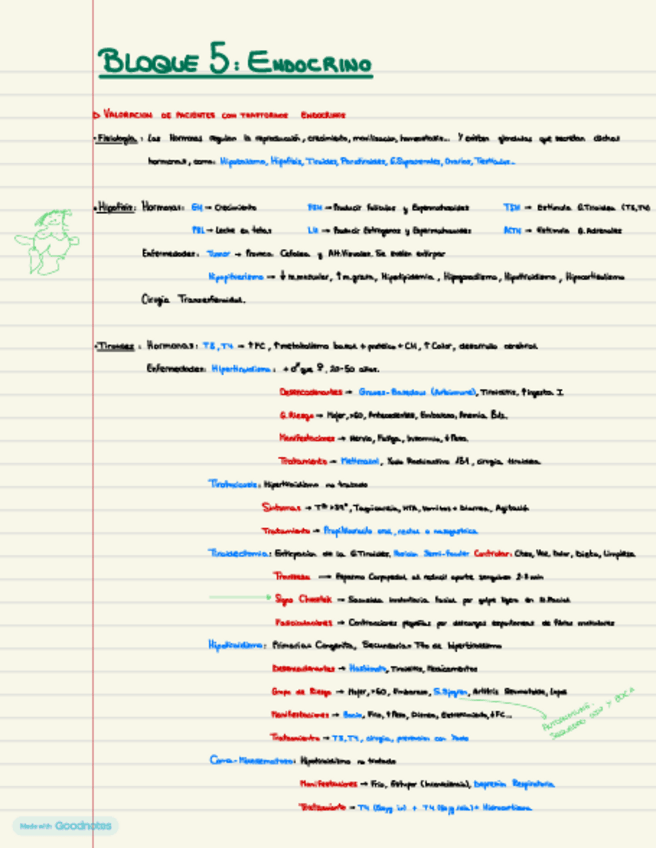 BLOQUE 5: ENDOCRINO
VALORACION DE PACIENTES CON TRASTORNOS ENDOCRINOS
Fisiología: Las Hormonas regulan la reproducción, crecimiento, movilización, homeostasis... Y existen glandulas que secretan dichas
hormonas, como: Hipotalamo, Hipófisis, Tiroides, Paratiroides, G.Suprarrenales, Ovarios, Testiculos..
Hipofisis: Hormonas: GH → Crecimiento FSH → Producir foliculos y Espermatozoides TSH → Estimula G.Tiroidea (T3,T4)
PRL → Leche en tetas LH → Producir Estrogenos y Espermatozoides ACTH → Estimula G.Adrenales
Enfermedades: Tumor → Cefalea y Alt.Visuales. Se suelen extirpar
Hipopituitarismo → ↓ m.muscular, ↑ m.grasa, Hiperlipidemia, Hipogonadismo, Hipotiroidismo, Hipocorticalismo
Cirugia Transesfenoidal.
Tiroides: Hormonas: T3, T4 → ↑FC, ↑metabolismo basal + proteico + CH, ↑ Calor, desarrollo cerebral
Enfermedades: Hipertiroidismo: + ♂ que ♀, 20-50 años.
Desencadenantes → Graves-Basedow (Autoinmune), Tiroiditis, ↑Ingesta I.
G.Riesgo → Mujer, >60, Antecedentes, Embarazo, Anemia B12.
Manifestaciones → Nervio, Fatiga, Insomnio, ↓Peso.
Tratamiento → Metimazol, Yodo Radioactivo 131, cirugia tiroidea.
Tirotoxicosis: Hipertiroidismo no tratado
Sintomas → Tª >39°, Taquicardia, HTA, vomitos + Diarrea, Agitación
Tratamiento → Propiltiouracilo oral, rectal o nasogastrica
Tiroidectomia: Extirpacion de la G.Tiroides, Posicion Semi-Fowler Controlar: Ctes, Voz, Dolor, Dieta, Limpieza
Trousseau → Espasmo Carpopedal al reducir aporte sanguineo 2-5 min
Signo Chvostek → Sacudida involuntaria facial por golpe ligero en N.Facial
Fasciculaciones → Contracciones pequeñas por descargas espontaneas de fibras musculares
Hipotiroidismo: Primario= Congenito, Secundario= Tto de hipertiroidismo
Desencadenantes → Hashimoto, Tiroiditis, Medicamentos
Grupo de Riesgo → Mujer, >60, Embarazo, S.Sjogren, Artritis Reumatoide, Lupus
Manifestaciones → Bocio, Frio, ↑Peso, Estreñimiento, ↓FC...
AUTOINMUNE.
SEQUEDAD OJOS Y BOCA
Tratamiento → T3, T4, cirugia, prevencion con Yodo
Coma-Mixedematoso: Hipotiroidismo no tratado
Manifestaciones → Frio, Estupor (Inconsciencia), Depresion Respiratoria
Tratamiento → T4 + T4 + Hidrocortisona
Made with Goodnotes